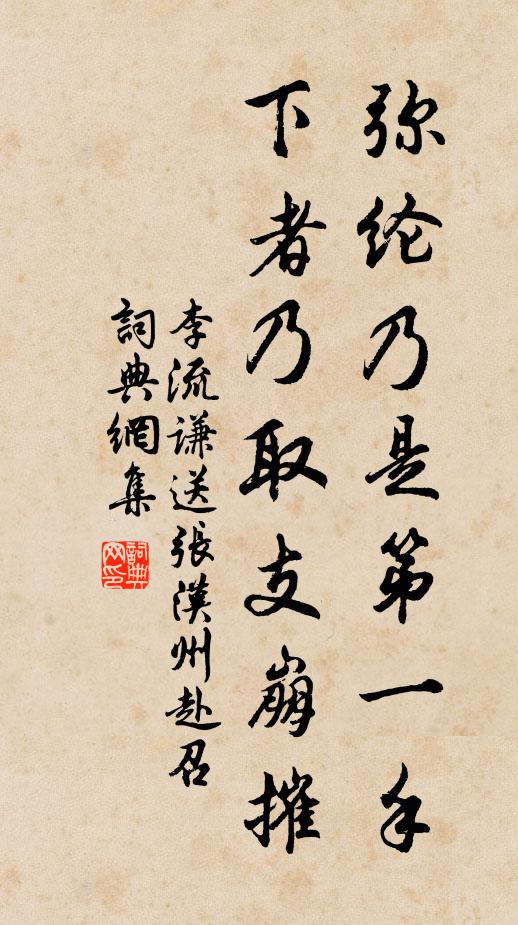 弥纶乃是第一手
下者乃取支崩摧
李流谦送張漢州赴召
詞典網集
詞典网印